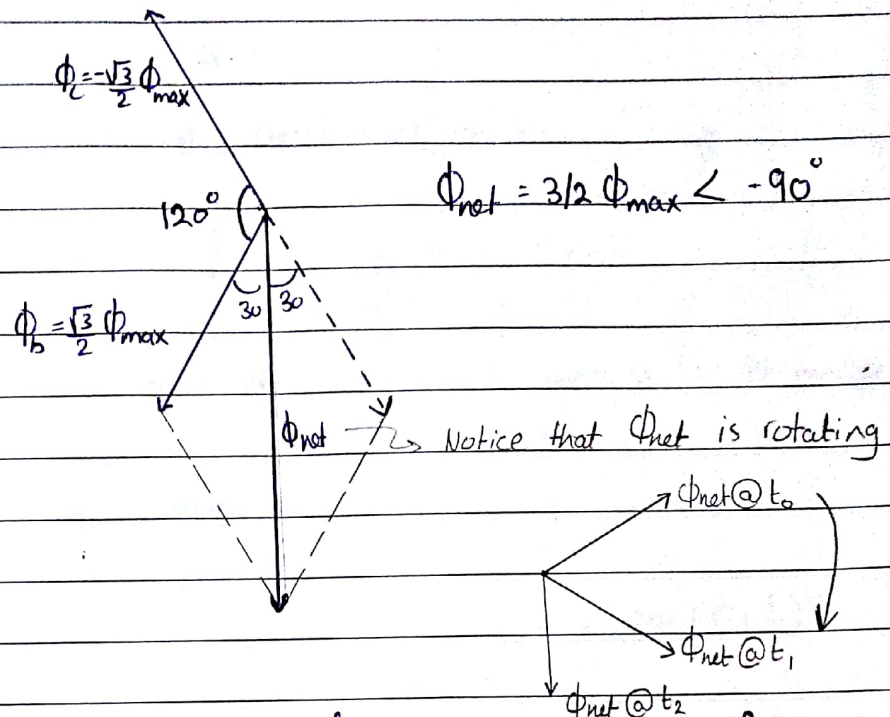 ϕc = -√3/2 ϕmax
ϕnet = 3/2 ϕmax < -90°
120°
30 30
ϕb = √3/2 ϕmax
ϕnet → Notice that ϕnet is rotating
ϕnet@t₀
ϕnet@t₁
ϕnet@t₂